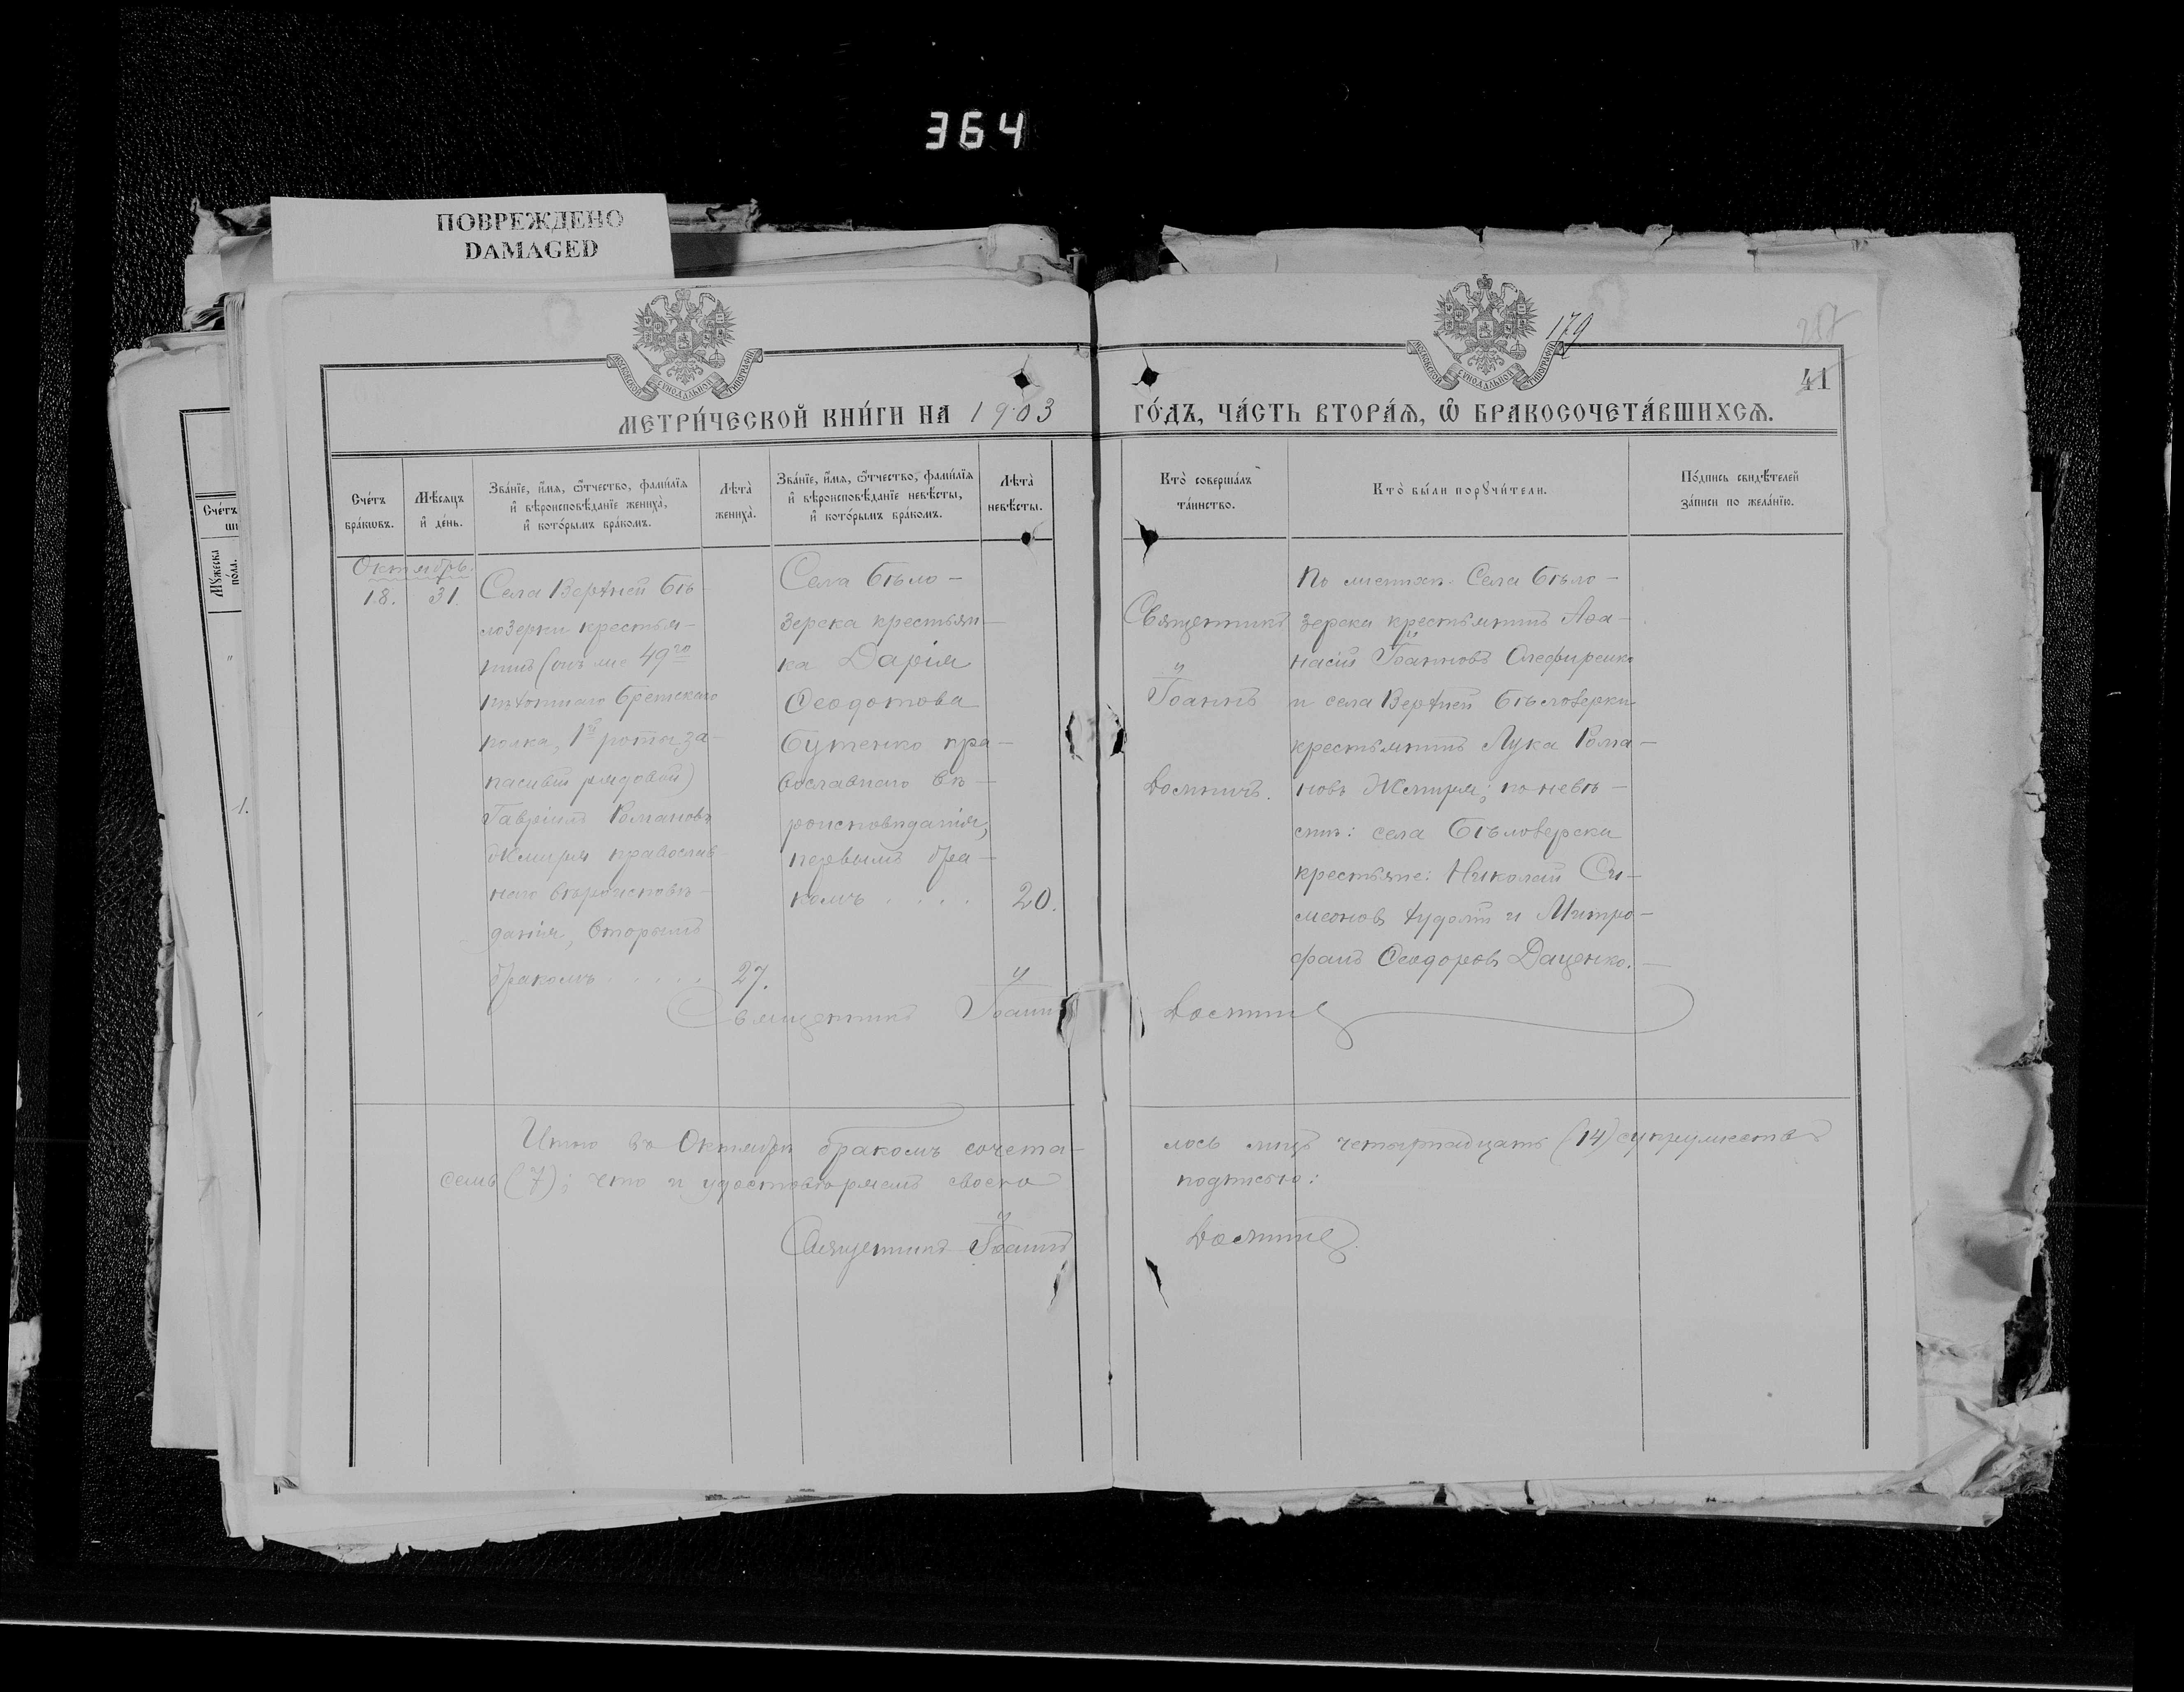 364
ПОВРЕЖДЕНО
DAMAGED
МОСКОВСКОЙ СѴНОДАЛЬНОЙ ТИПОГРАФІИ
МОСКОВСКОЙ СѴНОДАЛЬНОЙ ТИПОГРАФІИ
179
41
МЕТРИ́ЧЕСКОЙ КНИ́ГИ НА 1903 ГО́ДЪ, ЧА́СТЬ ВТОРА́Ѧ, Ѡ҆ БРАКОСОЧЕТА́ВШИХСѦ.
Сче́тъ
бра́кѡвъ.
Мѣ́сѧцъ
и҆ де́нь.
Зва́нїе, и҆́мѧ, ѻ҆́тчество, фами́лїѧ
и҆ вѣроисповѣ́данїе жениха̀,
и҆ кото́рымъ бра́комъ.
Лѣта̀
жениха̀.
Зва́нїе, и҆́мѧ, ѻ҆́тчество, фами́лїѧ
и҆ вѣроисповѣ́данїе невѣ́сты,
и҆ кото́рымъ бра́комъ.
Лѣта̀
невѣ́сты.
Кто̀ соверша́лъ
та́инство.
Кто̀ бы́ли порꙋчи́тели.
По́дпись свидѣ́телей
за́писи по жела́нїю.
Сче́тъ
Мꙋ́жеска
по́ла.
1.
Октябрь.
18.
31.
Села Верхней Бѣ-
лозерки крестья-
нинъ (онъ же 49го
пѣхотнаго Брестскаго
полка, 1й роты за-
пасный рядовой)
Гавріилъ Романовъ
Жмиря православ-
наго вѣроисповѣ-
данія, вторымъ
бракомъ . . . . .
27.
Села Бѣло-
зерска крестьян-
ка Дарія
Ѳеодотова
Бутенко пра-
вославнаго вѣ-
роисповѣданія,
первымъ бра-
комъ . . . .
20.
Священникъ
Іоаннъ
По женихѣ: Села Бѣло-
зерска крестьянинъ Аѳа-
насій Іоанновъ Олефиренко
и села Верхней Бѣлозерки
крестьянинъ Лука Рома-
новъ Жмиря; по невѣ-
стѣ: села Бѣлозерска
крестьяне: Николай Си-
меоновъ Худолій и Митро-
фанъ Ѳеодоровъ Даценко.
Священникъ Іоаннъ
Итого въ Октябрѣ бракомъ сочета-
лось лицъ четырнадцать (14) супружествъ
семь (7); что и удостовѣряемъ своею
подписью:
Священникъ Іоаннъ